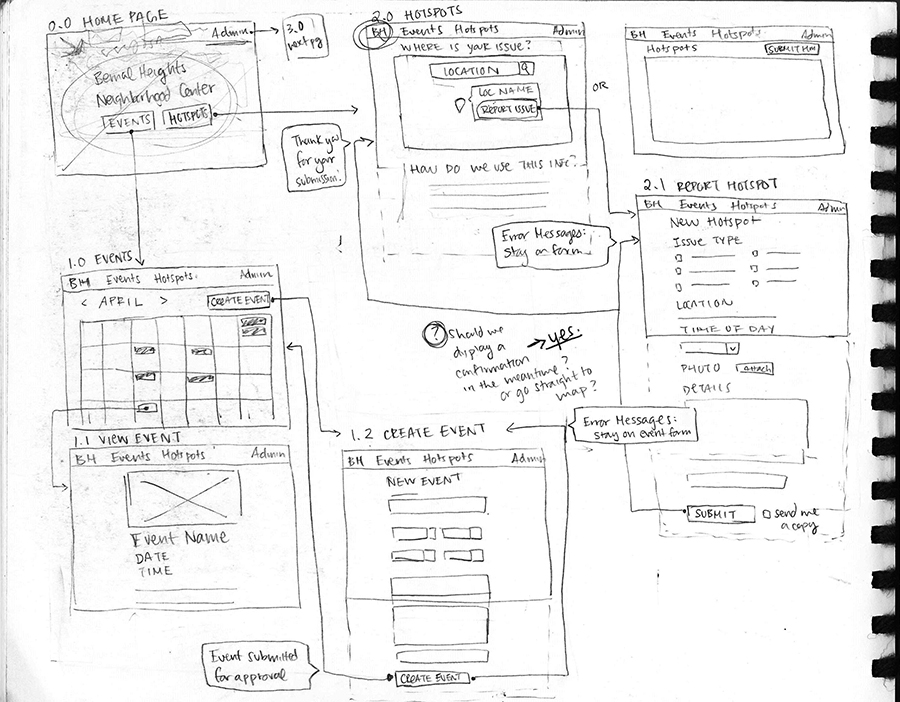 0.0 HOME PAGE
Admin
3.0
next pg
Bernal Heights
Neighborhood Center
EVENTS
HOTSPOTS
2.0 HOTSPOTS
BH Events Hotspots Admin
WHERE IS YOUR ISSUE?
LOCATION
LOC NAME
REPORT ISSUE
HOW DO WE USE THIS INFO?
OR
BH Events Hotspots Admin
Hotspots
Thank you
for your
submission!
2.1 REPORT HOTSPOT
BH Events Hotspots Admin
New Hotspot
ISSUE TYPE
LOCATION
TIME OF DAY
PHOTO Attach
DETAILS
SUBMIT
send me
a copy
Error Messages:
stay on form
1.0 EVENTS
BH Events Hotspots Admin
< APRIL >
CREATE EVENT
?
Should we
display a
confirmation
in the meantime?
or go straight to
map?
yes.
1.1 VIEW EVENT
BH Events Hotspots Admin
Event Name
DATE
TIME
1.2 CREATE EVENT
BH Events Hotspots Admin
NEW EVENT
CREATE EVENT
Error Messages:
stay on event form
Event submitted
for approval